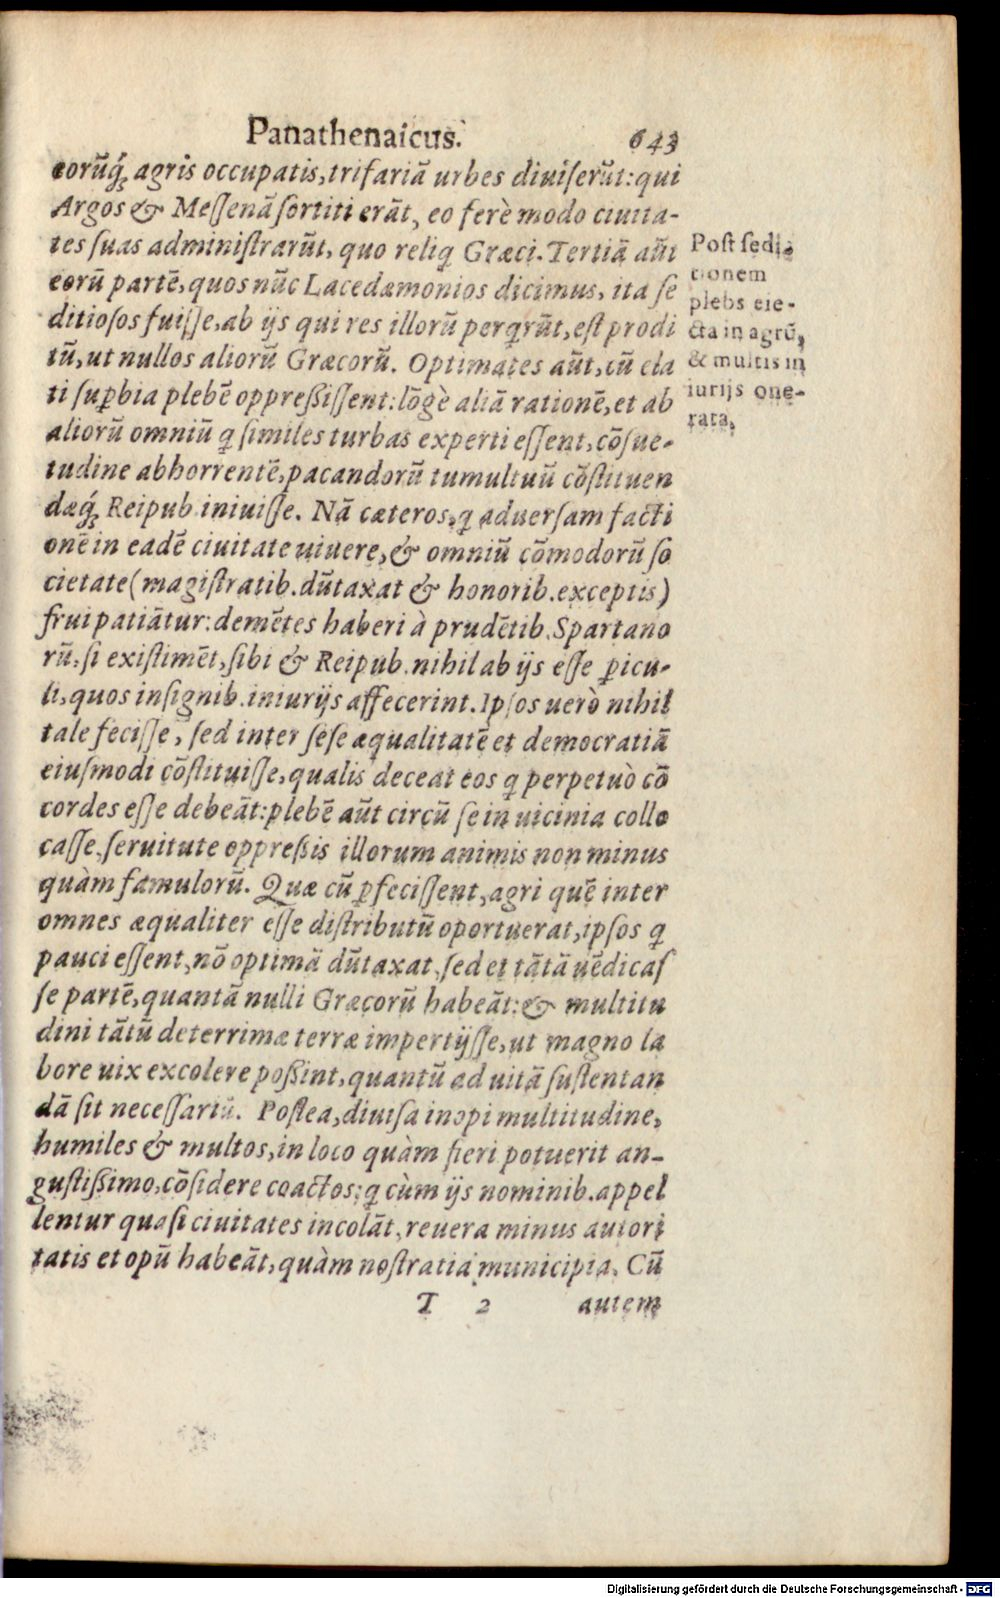 Panathenaicus. 643
eorūq́ꝫ agris occupatis, trifariā urbes diuiserūt: qui
Argos & Messenā sortiti erāt, eo ferè modo ciuita-
tes suas administrarūt, quo reliq Græci. Tertiā aūt
eorū partē, quos nūc Lacedæmonios dicimus, ita se
ditiosos fuisse, ab ijs qui res illorū perqrūt, est prodi
tū, ut nullos aliorū Græcorū. Optimates aūt, cū ela
ti suꝑbia plebē oppressissent: lōgè aliā rationē, et ab
aliorū omniū q similes turbas experti essent, cōsue-
tudine abhorrentē, pacandorū tumultuū cōstituen
dæq́ꝫ Reipub. iniuisse. Nā cæteros, q aduersam facti
onē in eadē ciuitate uiuere, & omniū cōmodorū so
cietate (magistratib. dūtaxat & honorib. exceptis)
frui patiātur: demētes haberi à prudētib. Spartano
rū, si existimēt, sibi & Reipub. nihil ab ijs esse ꝑicu-
li, quos insignib. iniurijs affecerint. Ipsos uerò nihil
tale fecisse, sed inter sese æqualitatē et democratiā
eiusmodi cōstituisse, qualis deceat eos q perpetuò cō
cordes esse debeāt: plebē aūt circū se in uicinia collo
casse, seruitute oppressis illorum animis non minus
quàm famulorū. Quæ cū ꝑfecissent, agri quē inter
omnes æqualiter esse distributū oportuerat, ipsos q
pauci essent, nō optimā dūtaxat, sed et tātā uēdicas
se partē, quantā nulli Græcorū habeāt: & multitu
dini tātū deterrimæ terræ impertijsse, ut magno la
bore uix excolere possint, quantū ad uitā sustentan
dā sit necessariū. Postea, diuisa inopi multitudine,
humiles & multos, in loco quàm fieri potuerit an-
gustissimo, cōsidere coactos: q cùm ijs nominib. appel
lentur quasi ciuitates incolāt, reuera minus autori
tatis et opū habeāt, quàm nostratia municipia. Cū
T 2 autem
Post sedi-
tionem
plebs eie-
cta in agrū,
& multis in
iurijs one-
rata.
Digitalisierung gefördert durch die Deutsche Forschungsgemeinschaft - DFG